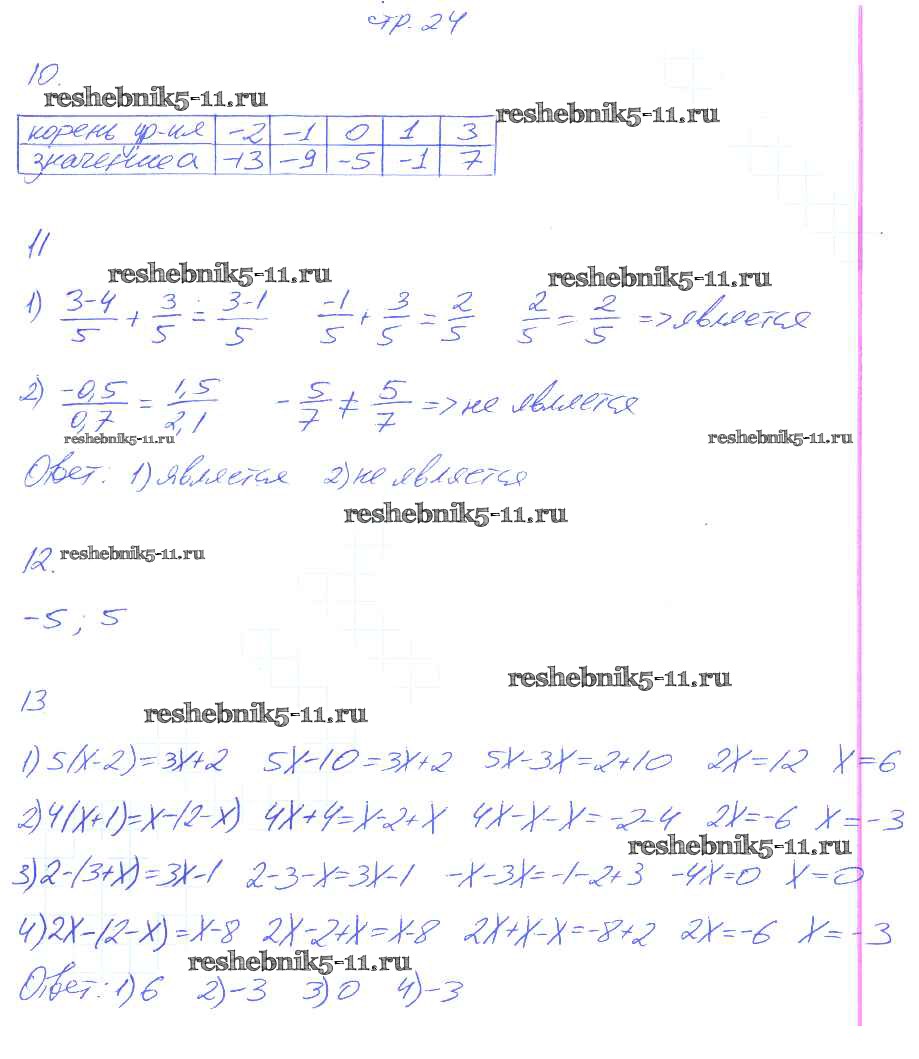 стр. 24
10.
reshebnik5-11.ru
reshebnik5-11.ru
корень ур-ия -2 -1 0 1 3
значение а -13 -9 -5 -1 7
11
reshebnik5-11.ru reshebnik5-11.ru
1) 3-4/5 + 3/5 = 3-1/5 -1/5 + 3/5 = 2/5 2/5 = 2/5 => является
2) -0,5/0,7 = 1,5/2,1 -5/7 ≠ 5/7 => не является
reshebnik5-11.ru reshebnik5-11.ru
Ответ: 1) является 2) не является
reshebnik5-11.ru
12. reshebnik5-11.ru
-5; 5
reshebnik5-11.ru
13
reshebnik5-11.ru
1) 5(x-2)=3x+2 5x-10=3x+2 5x-3x=2+10 2x=12 x=6
2) 4(x+1)=x-(2-x) 4x+4=x-2+x 4x-x-x=-2-4 2x=-6 x=-3
reshebnik5-11.ru
3) 2-(3+x)=3x-1 2-3-x=3x-1 -x-3x=-1-2+3 -4x=0 x=0
4) 2x-(2-x)=x-8 2x-2+x=x-8 2x+x-x=-8+2 2x=-6 x=-3
reshebnik5-11.ru
Ответ: 1) 6 2) -3 3) 0 4) -3